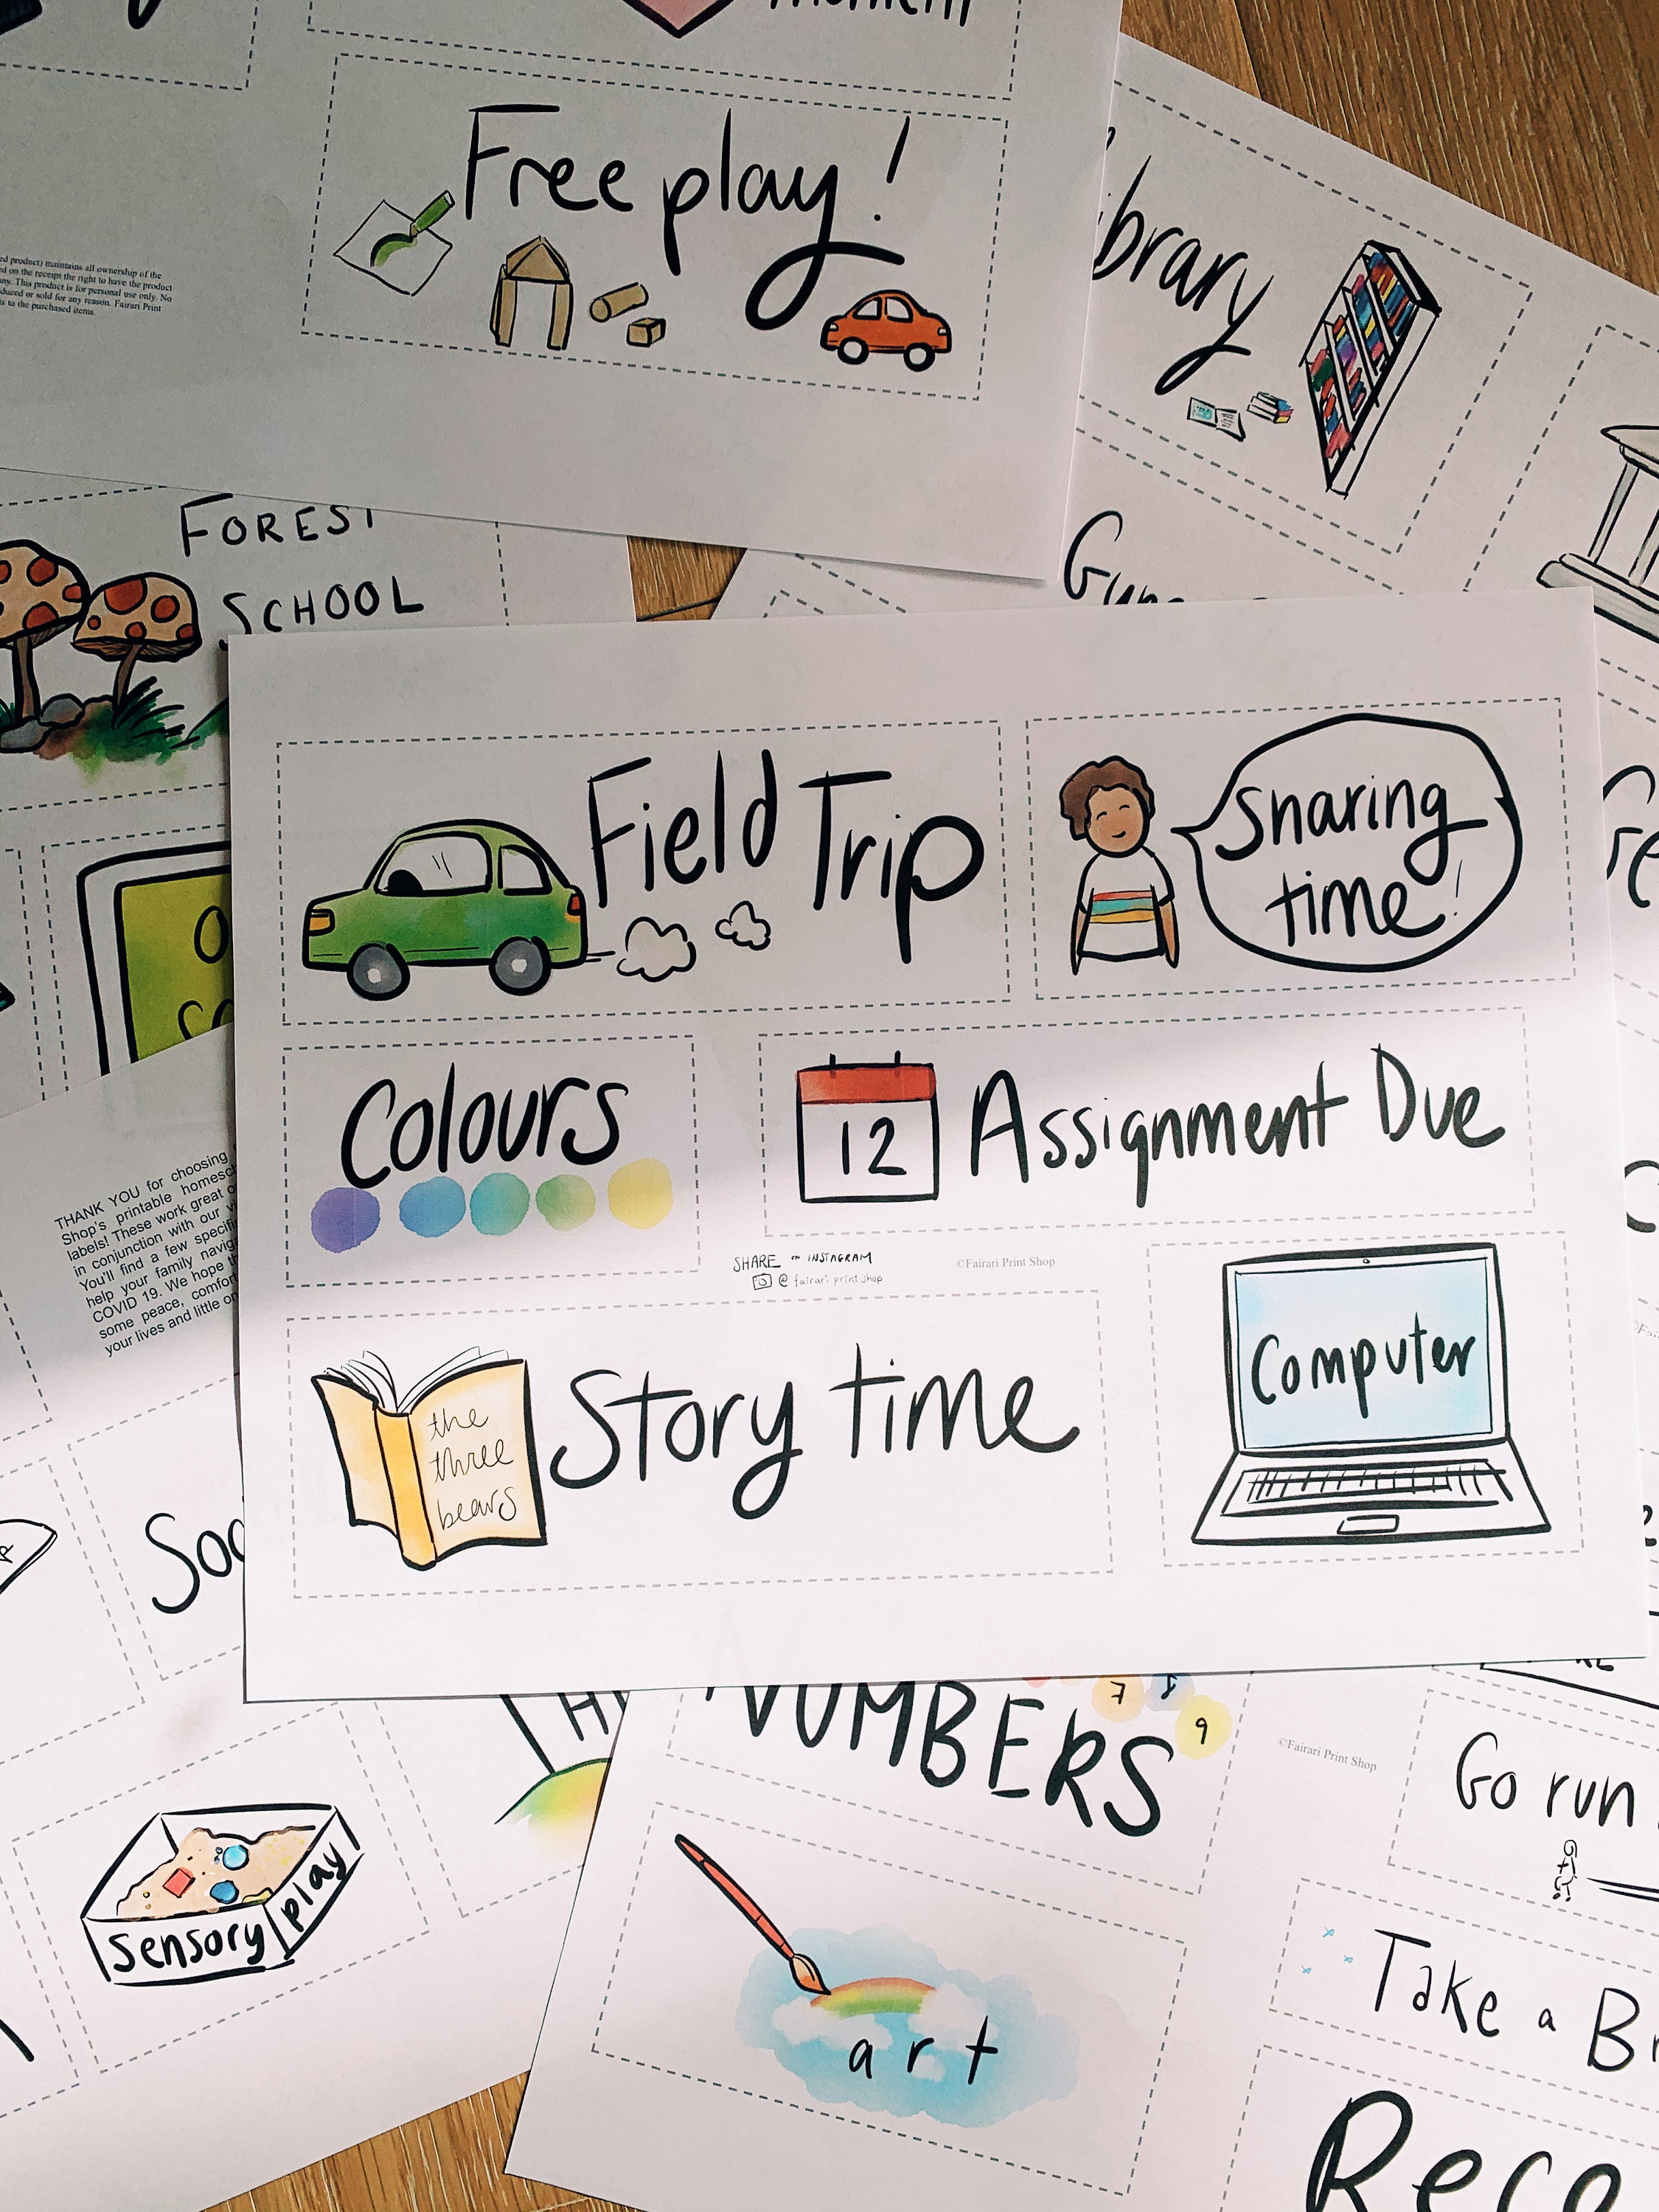 Free play!
ed product) maintains all ownership of the
ed on the receipt the right to have the product
ny. This product is for personal use only. No
duced or sold for any reason. Fairari Print
s to the purchased items.
FOREST
SCHOOL
Field Trip
Sharing
time!
Colours
12
Assignment Due
SHARE on INSTAGRAM
@ fairari print shop
©Fairari Print Shop
the
three
bears
Story time
Computer
THANK YOU for choosing
Shop's printable homesch
labels! These work great o
in conjunction with our vi
You'll find a few specifi
help your family naviga
COVID 19. We hope th
some peace, comfor
your lives and little on
Soc
NUMBERS
7
9
©Fairari Print Shop
Go run
sensory play
art
Take a Br
Reco